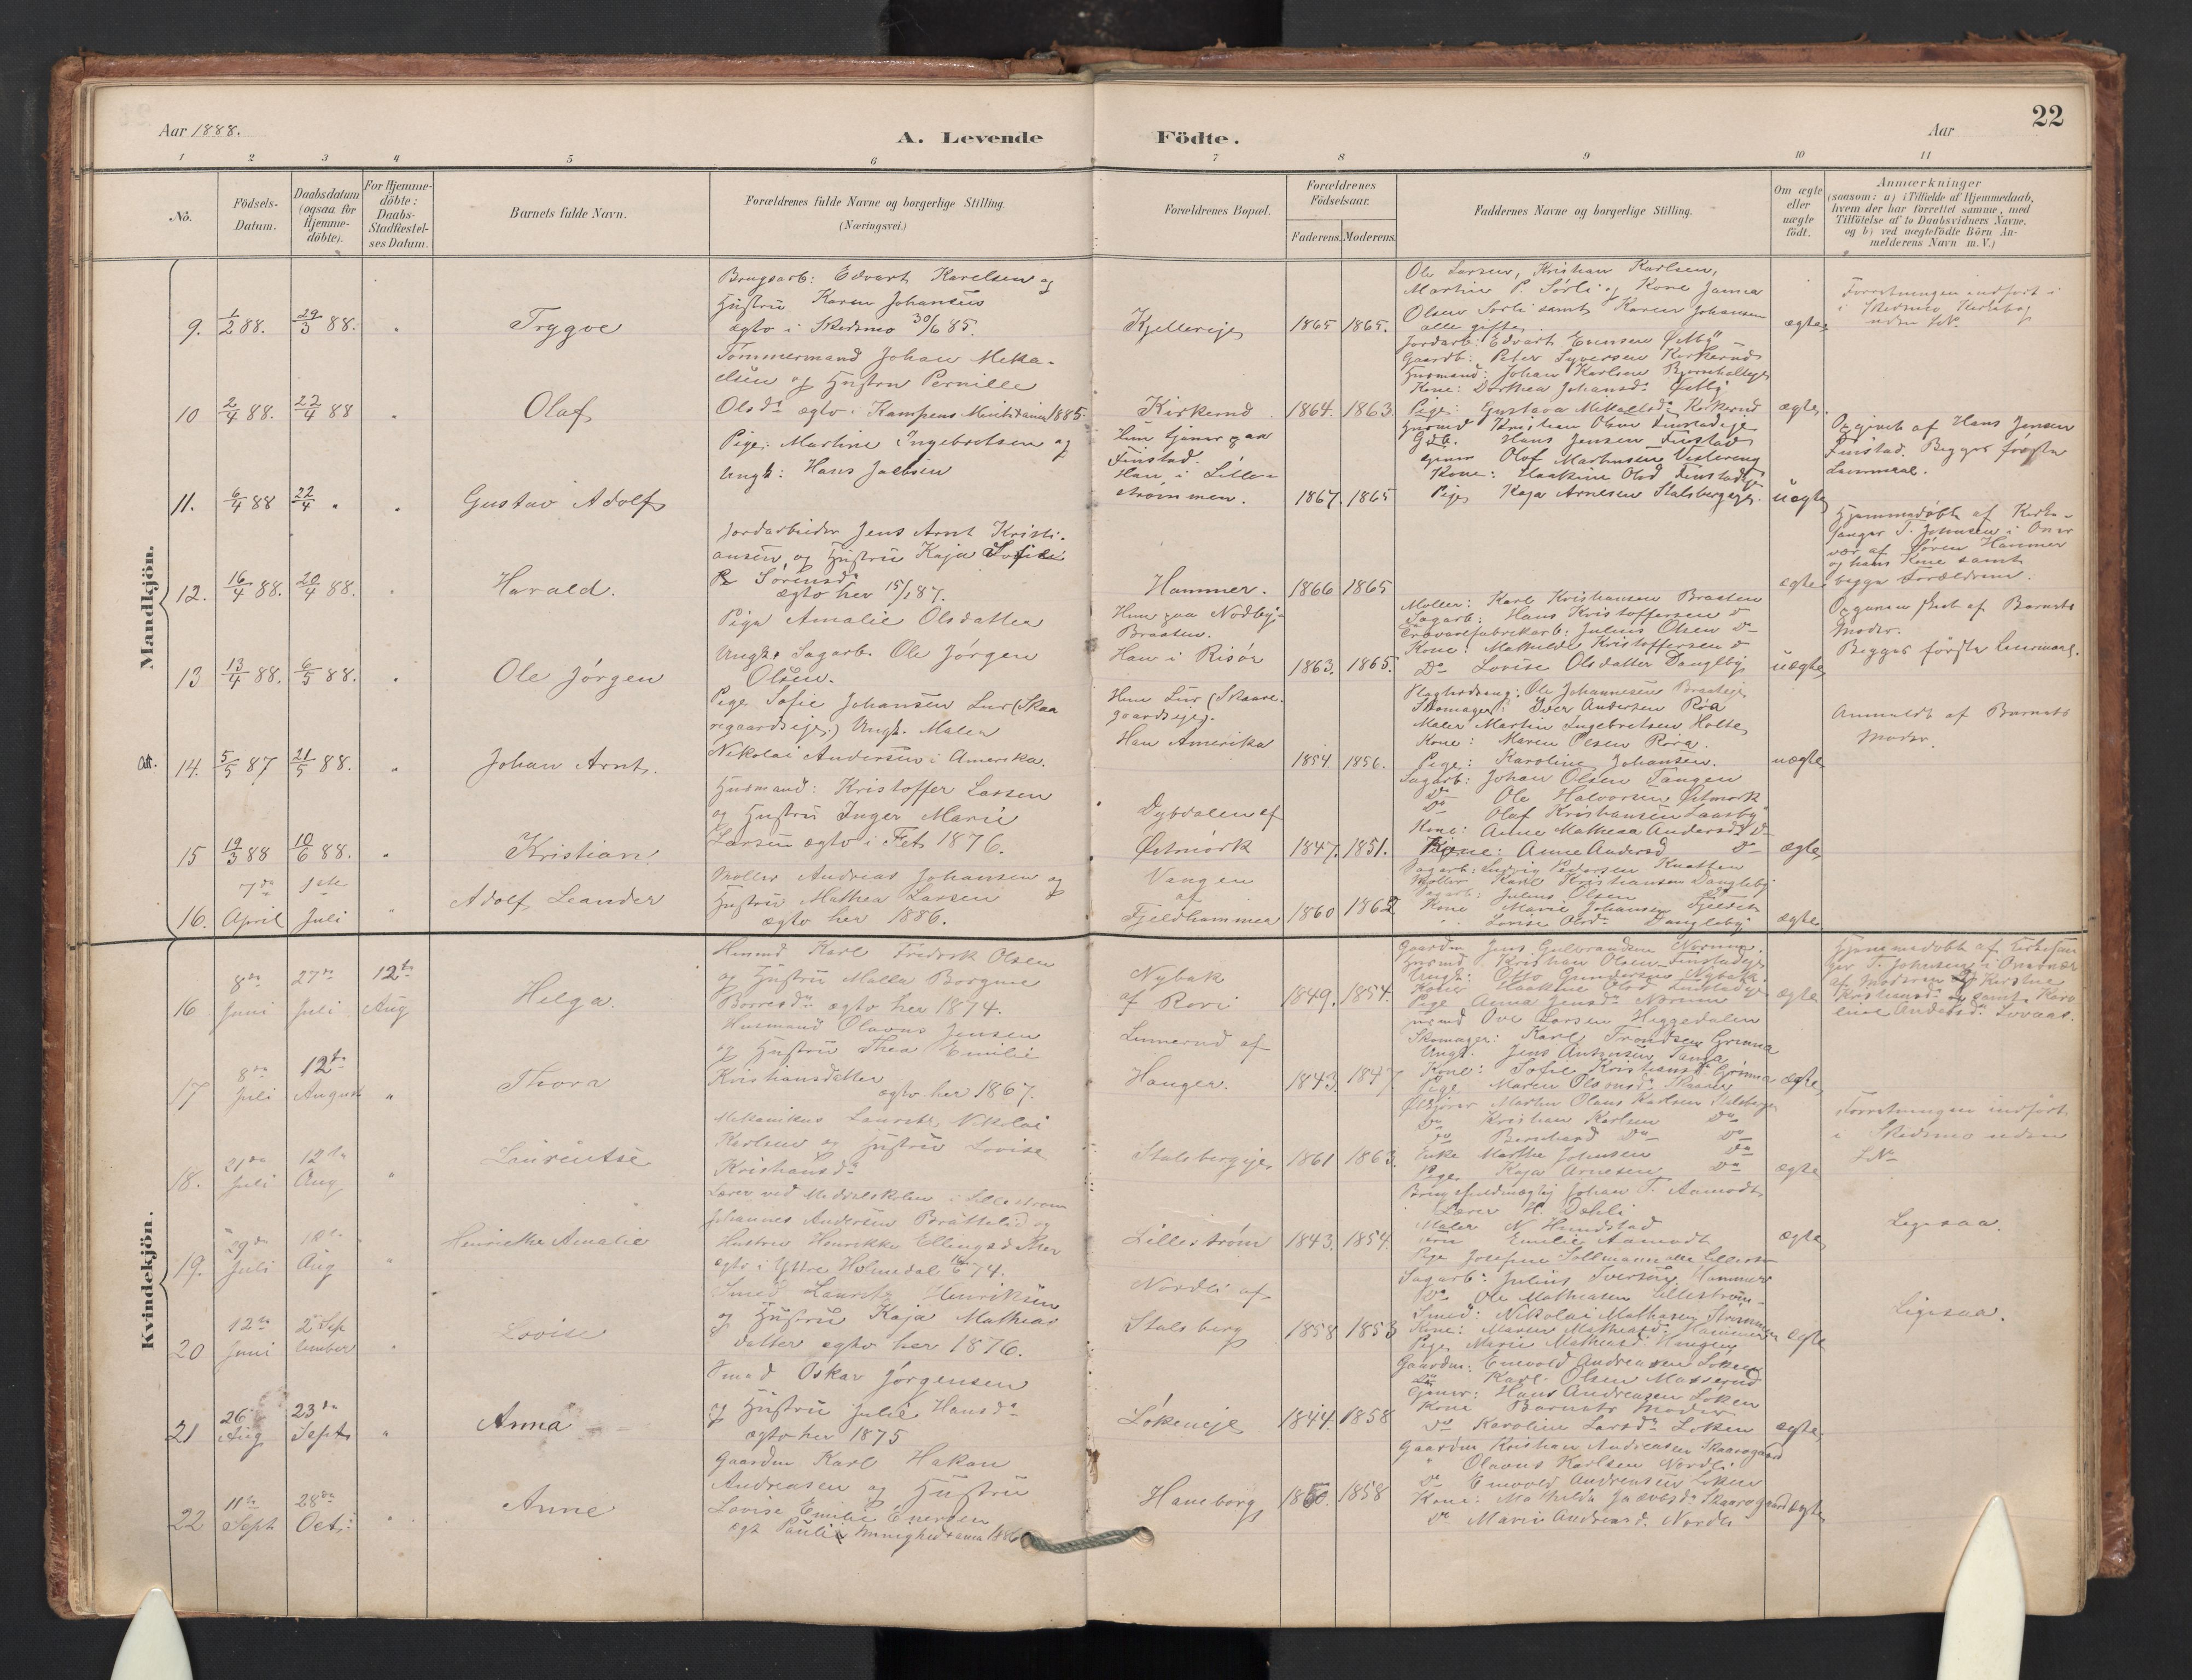 22
Aar 1888.
A. Levende Födte.
Aar
1 2 3 4 5 6 7 8 9 10 11
No.
Födsels-Datum.
Daabsdatum (ogsaa for Hjemme-döbte).
For Hjemme-döbte: Daabs-Stadfæstel-ses Datum.
Barnets fulde Navn.
Forældrenes fulde Navne og borgerlige Stilling.
(Næringsvei.)
Forældrenes Bopæl.
Forældrenes Födselsaar.
Faderens.
Moderens.
Faddernes Navne og borgerlige Stilling.
Om ægte eller uægte födt.
Anmærkninger
(saasom: a) i Tilfælde af Hjemmedaab,
hvem der har forrettet samme, med
Tilföielse af to Daabsvidners Navne,
og b) ved uægtefödte Börn An-
melderens Navn m. V.)
Mandkjön.
9. 1/2 88. 29/3 88. Trygve
Brugsarb: Edvart Karelsen og
Hustru Karen Johansen
ægtv i Skedsmo 30/6 85.
Kjellereje 1865 1865.
Ole Larsen, Kristian Karlsen,
Martin P. Sørli og Kone Janna
Olsen Sørli samt Karen Johansen
alle gifte.
ægte
Forretningen indført i
i Skedsmo Kirkebog
uden LNo
10 2/4 88. 22/4 88 Olaf
Tømmermand Johan Mika-
elsen og Hustru Pernille
Olsdr ægtv. i Kampens Menighed 1885.
Kirkerud 1864. 1863.
Jordarb: Edvart Evensen Østby
Gaardb: Peter Syversen Kirkerud
Husmand: Johan Karlsen Bjørnholteje
Kone: Dorthea Johansdr Østby
Pige: Gustava Mikaelsdr Kirkerud
ægte.
11. 6/4 88 22/4 Gustav Adolf
Pige: Martine Ingebretsen og
Ungk: Hans Jacobsen
Hun tjener paa
Finstad.
Han i Lille-
strømmen. 1867. 1865
Husmd Kristian Olsen Finstadeje
Gdb. Hans Jensen Finstad
Olof Martinsen Vestereng
Kone: Haakine Olsd Finstadeje
Pige Kaja Arnesen Stalsbergeje.
uægte
Opgivet af Hans Jensen
Finstad. Begges første
Leiermaal.
12. 16/4 88. 20/4 88. Harald.
Jordarbeider Jens Arnt Kristi-
ansen og Hustru Kaja Sofie
Sørensdr
ægtv her 15/1 87.
Hammer. 1866 1865
ægte
Hjemmedøbt af Kirke-
sanger T. Johnsen i Over
vær af Søren Hammer
og hans Kone samt
begge Forældrene.
13 13/4 88. 6/5 88. Ole Jørgen
Pige Amalie Olsdatter
Ungk: Sagarb. Ole Jørgen
Olsen.
Hun paa Nordby-
Braaten.
Han i Risør 1863. 1865.
Møller: Karl Kristiansen Braaten
Sagarb: Hans Kristoffersen Do
Trævarefabrikarb: Julius Olsen Do
Kone: Mathilde Kristoffersen Do
Do Lovise Olsdatter Dangleby
uægte
Opgaven af Barnets
Moder.
Begges første Leiermaal.
14. 5/5 87 21/5 88. Johan Arnt.
Pige Sofie Johansen Lur (Skaa
regaardseje.) Ungk. Maler
Nikolai Andersen i Amerika.
Hun Lur (Skaare-
gaardseje).
Han Amerika
1854 1856.
Ole Johannesen Braateje
Skomager: Iver Andersen Roa
Maler Martin Ingebretsen Holte
Kone: Maren Olsen
Pige: Karoline Johansen.
uægte
Anmeldt af Barnets
Moder.
15 19/3 88 10/6 88. Kristian.
Husmand: Kristoffer Larsen
og Hustru Inger Marie
Larsen ægtv i Fet 1876.
Dybdalen af
Østmork 1847. 1851.
Sagarb: Johan Olsen Tangen
Do Ole Halvorsen Østmork
Do Olaf Kristiansen Laasby
Kone: Anne Mathea Andersdr Do
Kone: Anne Andersd Do
ægte
16. 7de April 1ste Juli Adolf Leander
Møller Andreas Johansen og
Hustru Mathea Larsen
ægtv her 1886.
Vangen
af
Fjeldhammer 1860 1862
Sagarb: Ludvig Pedersen Knatten
Møller Karl Kristiansen Dangleby
Sagarb: Julius Olsen Do
Kone Marie Johansen Fjeldet
Lovise Olsdr Dangleby
ægte
Kvindekjön.
16 8de Juni 27de Juli 12te Aug Helga.
Husmd Karl Fredrik Olsen
og Hustru Malla Borgine
Borresdr ægtv her 1874.
Nybak
af Rovi 1849. 1854.
Gaardm Jens Gulbrandsen Nærum.
Husmd Kristian Olsen Finstadeje
Ungk: Otto Gundersen Nybak.
Kone Haakine Olsd Finstadeje
Pige Anna Jensdr Nærum
ægte
Hjemmedøbt af Kirkesan
ger T. Johnsen i Overvær
af Moderen og Kirstine
Kristiansdr og samt Karo
line Andersdr Lovaas.
17 8de Juli 12te August Thora
Husmand Olavus Jensen
og Hustru Thea Emilie
Kristiansdatter
ægtv her 1867.
Lunnerud af
Hauger. 1843. 1847
Husmd Ove Larsen Heggedalen
Skomager: Karl Trondsen Grinna
Ungk. Jens Antonsen Tangen
Kone: Sofie Kristiansd Grinna
Pige Maren Olavesdr Skaarer
ægte
18. 21de Juli 12te Aug Laurentse
Mekanikus Laurits Nikolai
Karlsen og Hustru Lovise
Kristiansdr
Stalsbergeje 1861 1863.
Martin Olaus Karlsen Stalsbergeje
Do Kristian Karlsen Do
Do Bernhard Do Do
Enke Marthe Johnsen Do
Pige Kaja Arnesen Do
ægte
Forretningen indført
i Skedsmo uden
LNo
19. 29de Juli Aug Henriette Amalie
Lærer ved Middelskolen i Lillestrøm
Johannes Andersen Brattelid og
Hustru Henrikke Ellingsdatter
ægtv i Yttre Holmedal 74.
Lillestrøm 1843. 1854
Brugsfuldmægtig Johan T. Aamodt
Lærer H. Dæhli
Maler N. Hundstad
Emilie Aamodt
Pige Josefine Sollmann alle Lillestr
ægte
Ligesaa.
20 12te Juni 2 September Lovise
Smed Lauritz Henriksen
og Hustru Kaja Mathias
datter ægtv her 1876.
Nordli af
Stalsberg 1858 1853
Sagarb: Julius Iversen Hammer
Do Ole Mathiasen Lillestrøm
Smed: Nikolai Mathiasen Strømmen
Kone: Maren Mathiasdr Hammer
Pige Marie Mathiasd Haugen
ægte
Ligesaa.
21 26 Aug 23de Sept Anna
Smed Oskar Jørgensen
og Hustru Julie Hansdr
ægtv her 1875
Lökeneje 1844. 1858
Gaardm: Enevold Andreasen Löken
Do Karl Olsen Masserud
Hans Andreasen Löken
Kone Barnets Moder
Do Karoline Larsdr Löken
ægte
22 11te Sept 28de Oct: Anne
Gaardm Karl Hakon
Andreasen og Hustru
Lovise Emilie Enersen
ægt Pauli Menighed
Haneborg 1850. 1858
Gaardm Kristian Andreasen Skaaregaard
Olavus Karlsen Nordli
Do Enevold Andreasen Löken
Kone: Mathilde Jacobsdr Skaaregaard
Do Marie Andreasd. Nordli
ægte